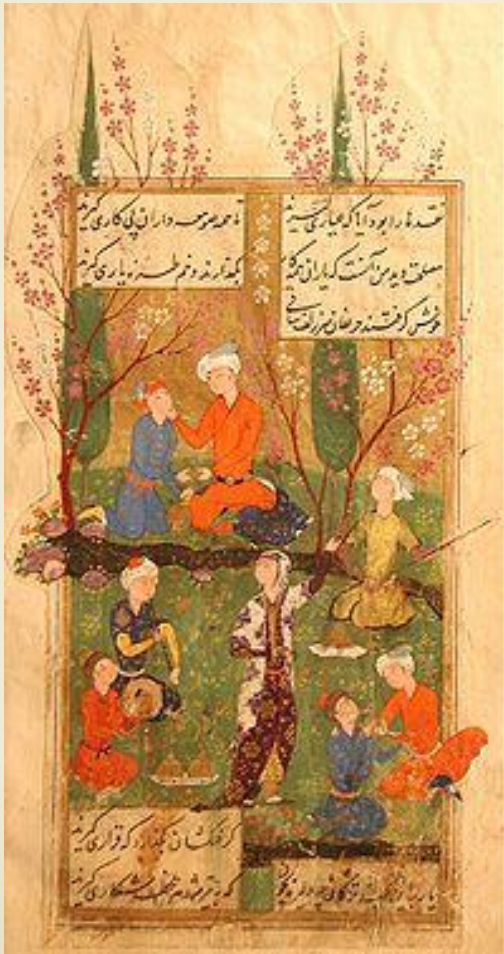 نقدها را بود آیا که عیاری گیرند
تا همه صومعه داران پی کاری گیرند
مصلحت دید من آنست که یاران همه کار
بگذارند و خم طره یاری گیرند
خوش گرفتند حریفان سر زلف ساقی
گر فلکشان بگذارد که قراری گیرند
یا رب این بچه ترکان چه دلیرند بخون
که بتیر مژه هر لحظه شکاری گیرند